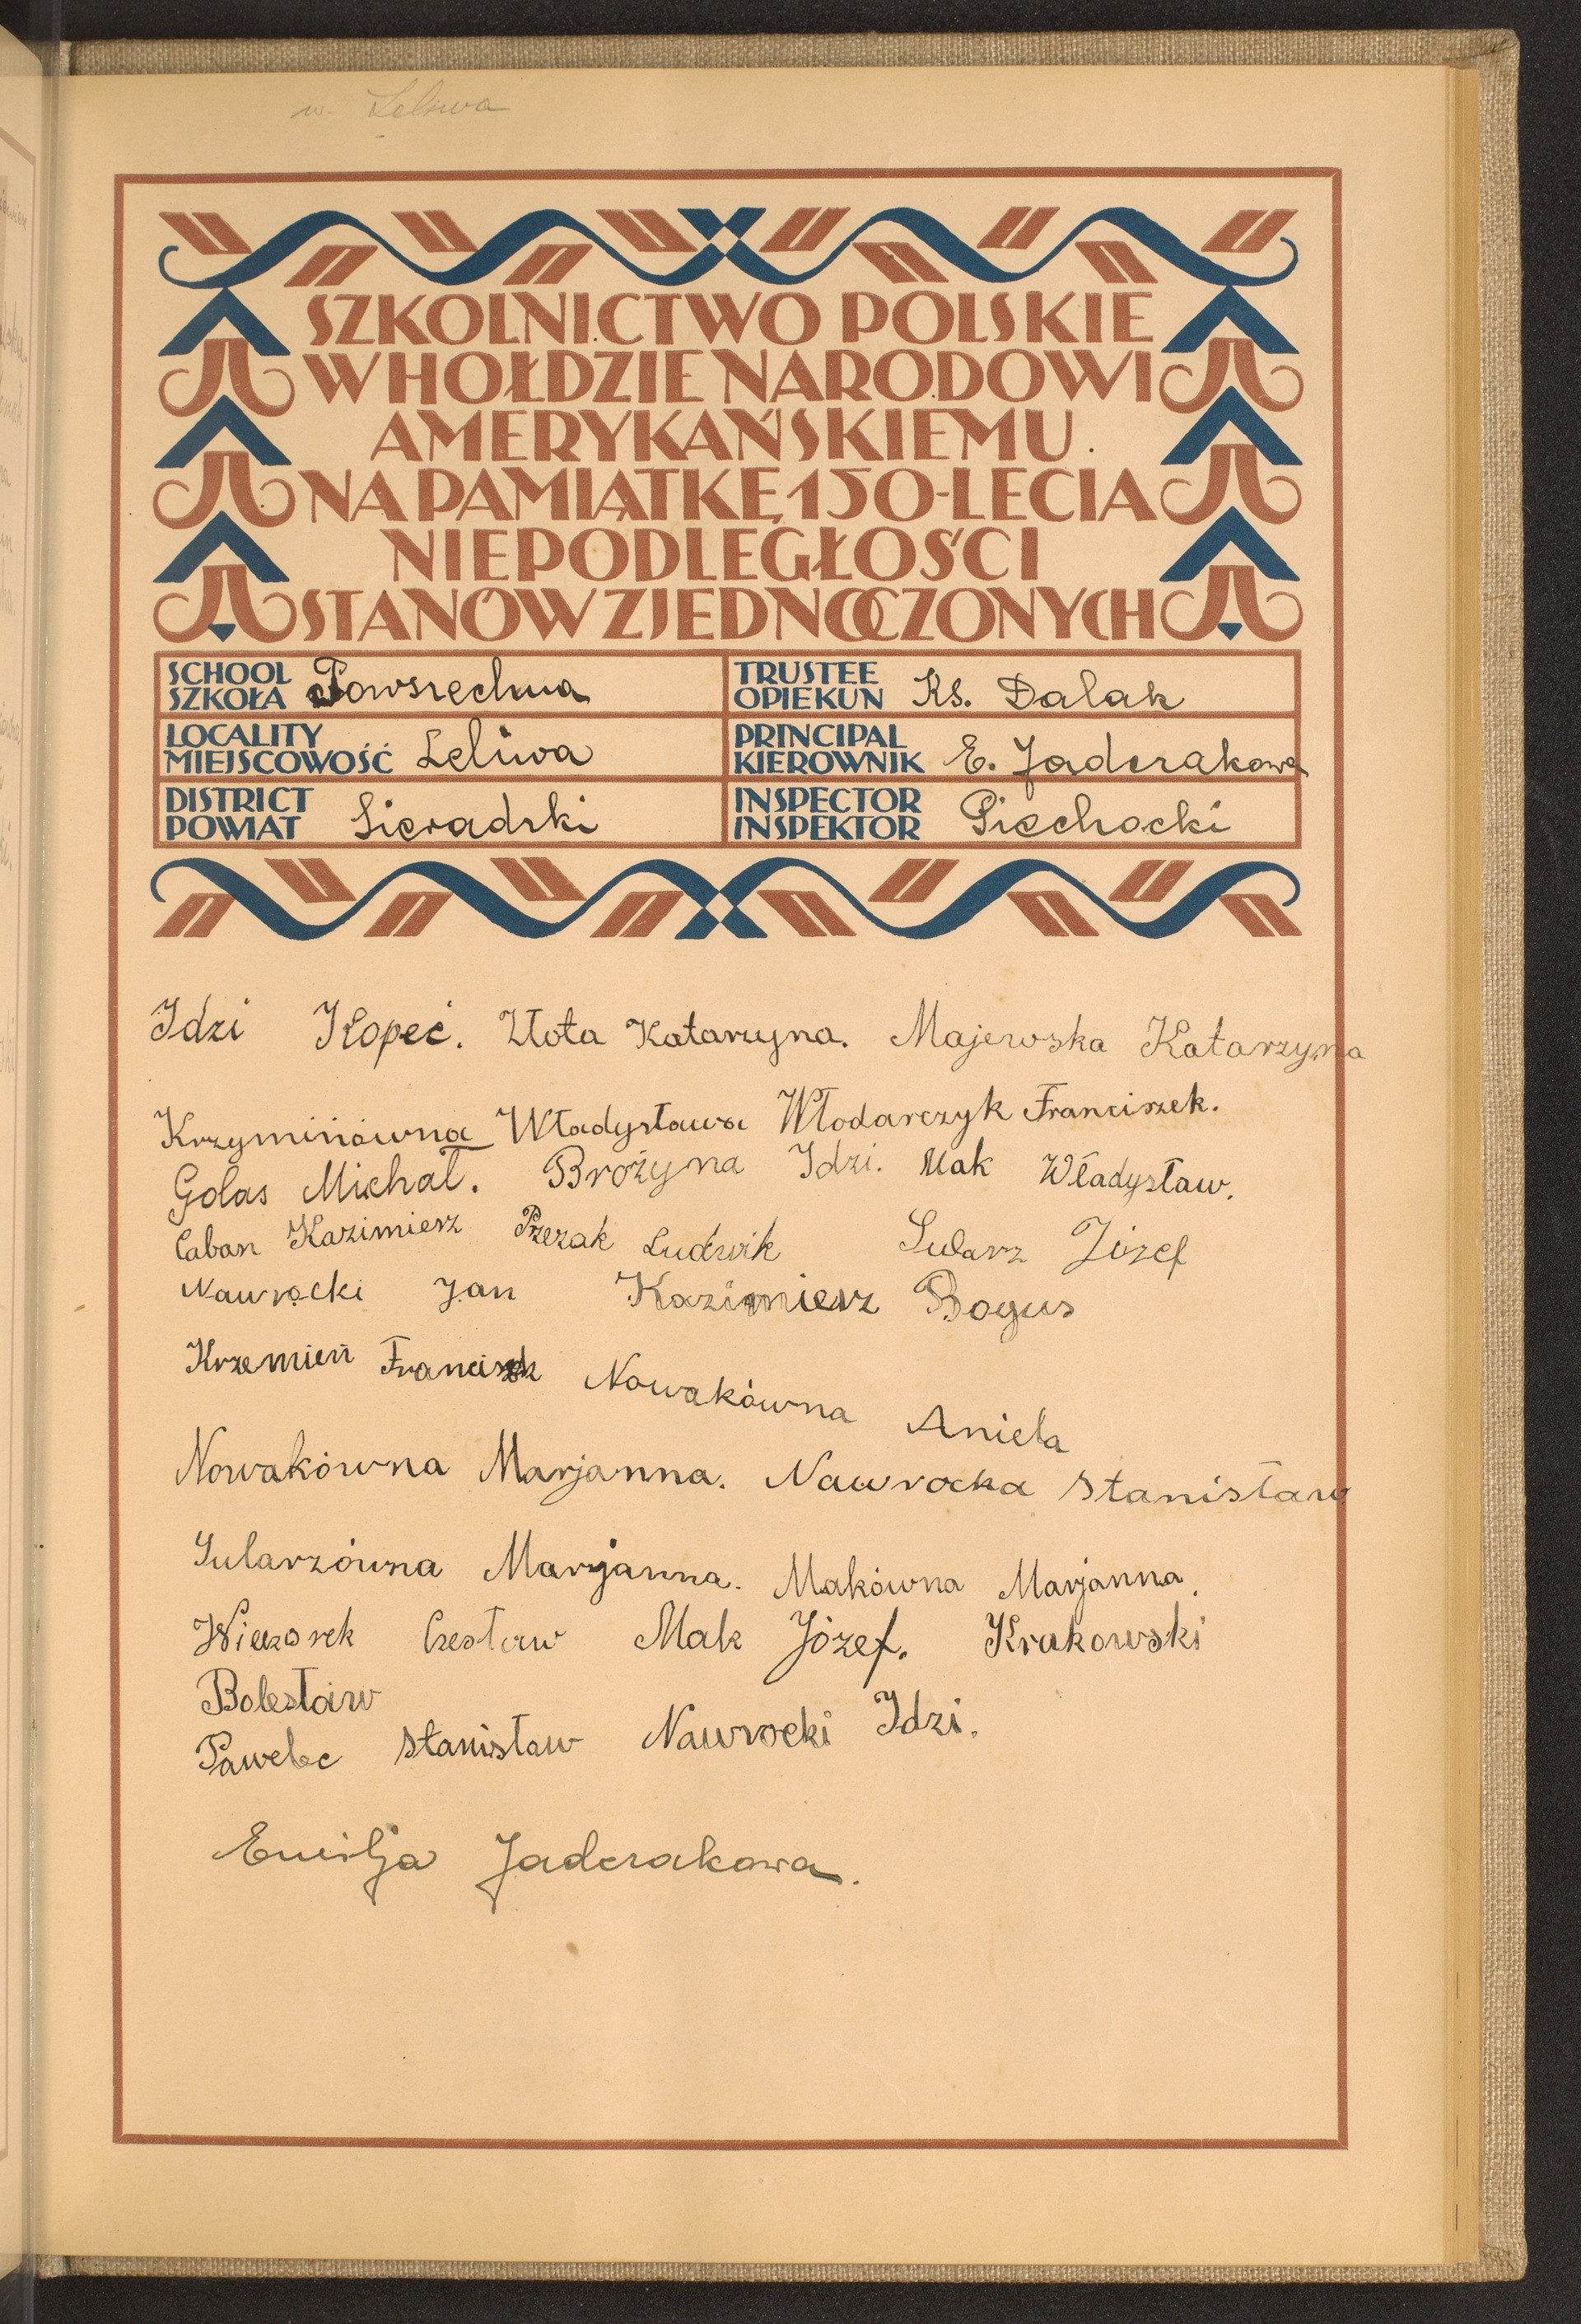 w. Leliwa
SZKOLNICTWO POLSKIE
W HOŁDZIE NARODOWI
AMERYKAŃSKIEMU
NA PAMIĄTKĘ 150-LECIA
NIEPODLEGŁOŚCI
STANÓW ZJEDNOCZONYCH
SCHOOL SZKOŁA Powszechna
TRUSTEE OPIEKUN Ks. Dalak
LOCALITY MIEJSCOWOŚĆ Leliwa
PRINCIPAL KIEROWNIK E. Jaderakowa
DISTRICT POWIAT Sieradzki
INSPECTOR INSPEKTOR Piechocki
Idzi Kopeć. Złota Katarzyna. Majewska Katarzyna
Krzyminówna Władysława Włodarczyk Franciszek.
Golas Michał. Brożyna Idzi. Mak Władysław.
Caban Kazimierz Przezak Ludwik Sularz Józef
Nawrocki Jan Kazimierz Bogus
Krzemień Franciszek Nowakówna Aniela
Nowakówna Marjanna. Nawrocka Stanisław
Sularzówna Marjanna. Makówna Marjanna.
Wieczorek Czesław Mak Józef. Krakowski
Bolesław
Pawelec Stanisław Nawrocki Idzi.
Emilja Jaderakowa.